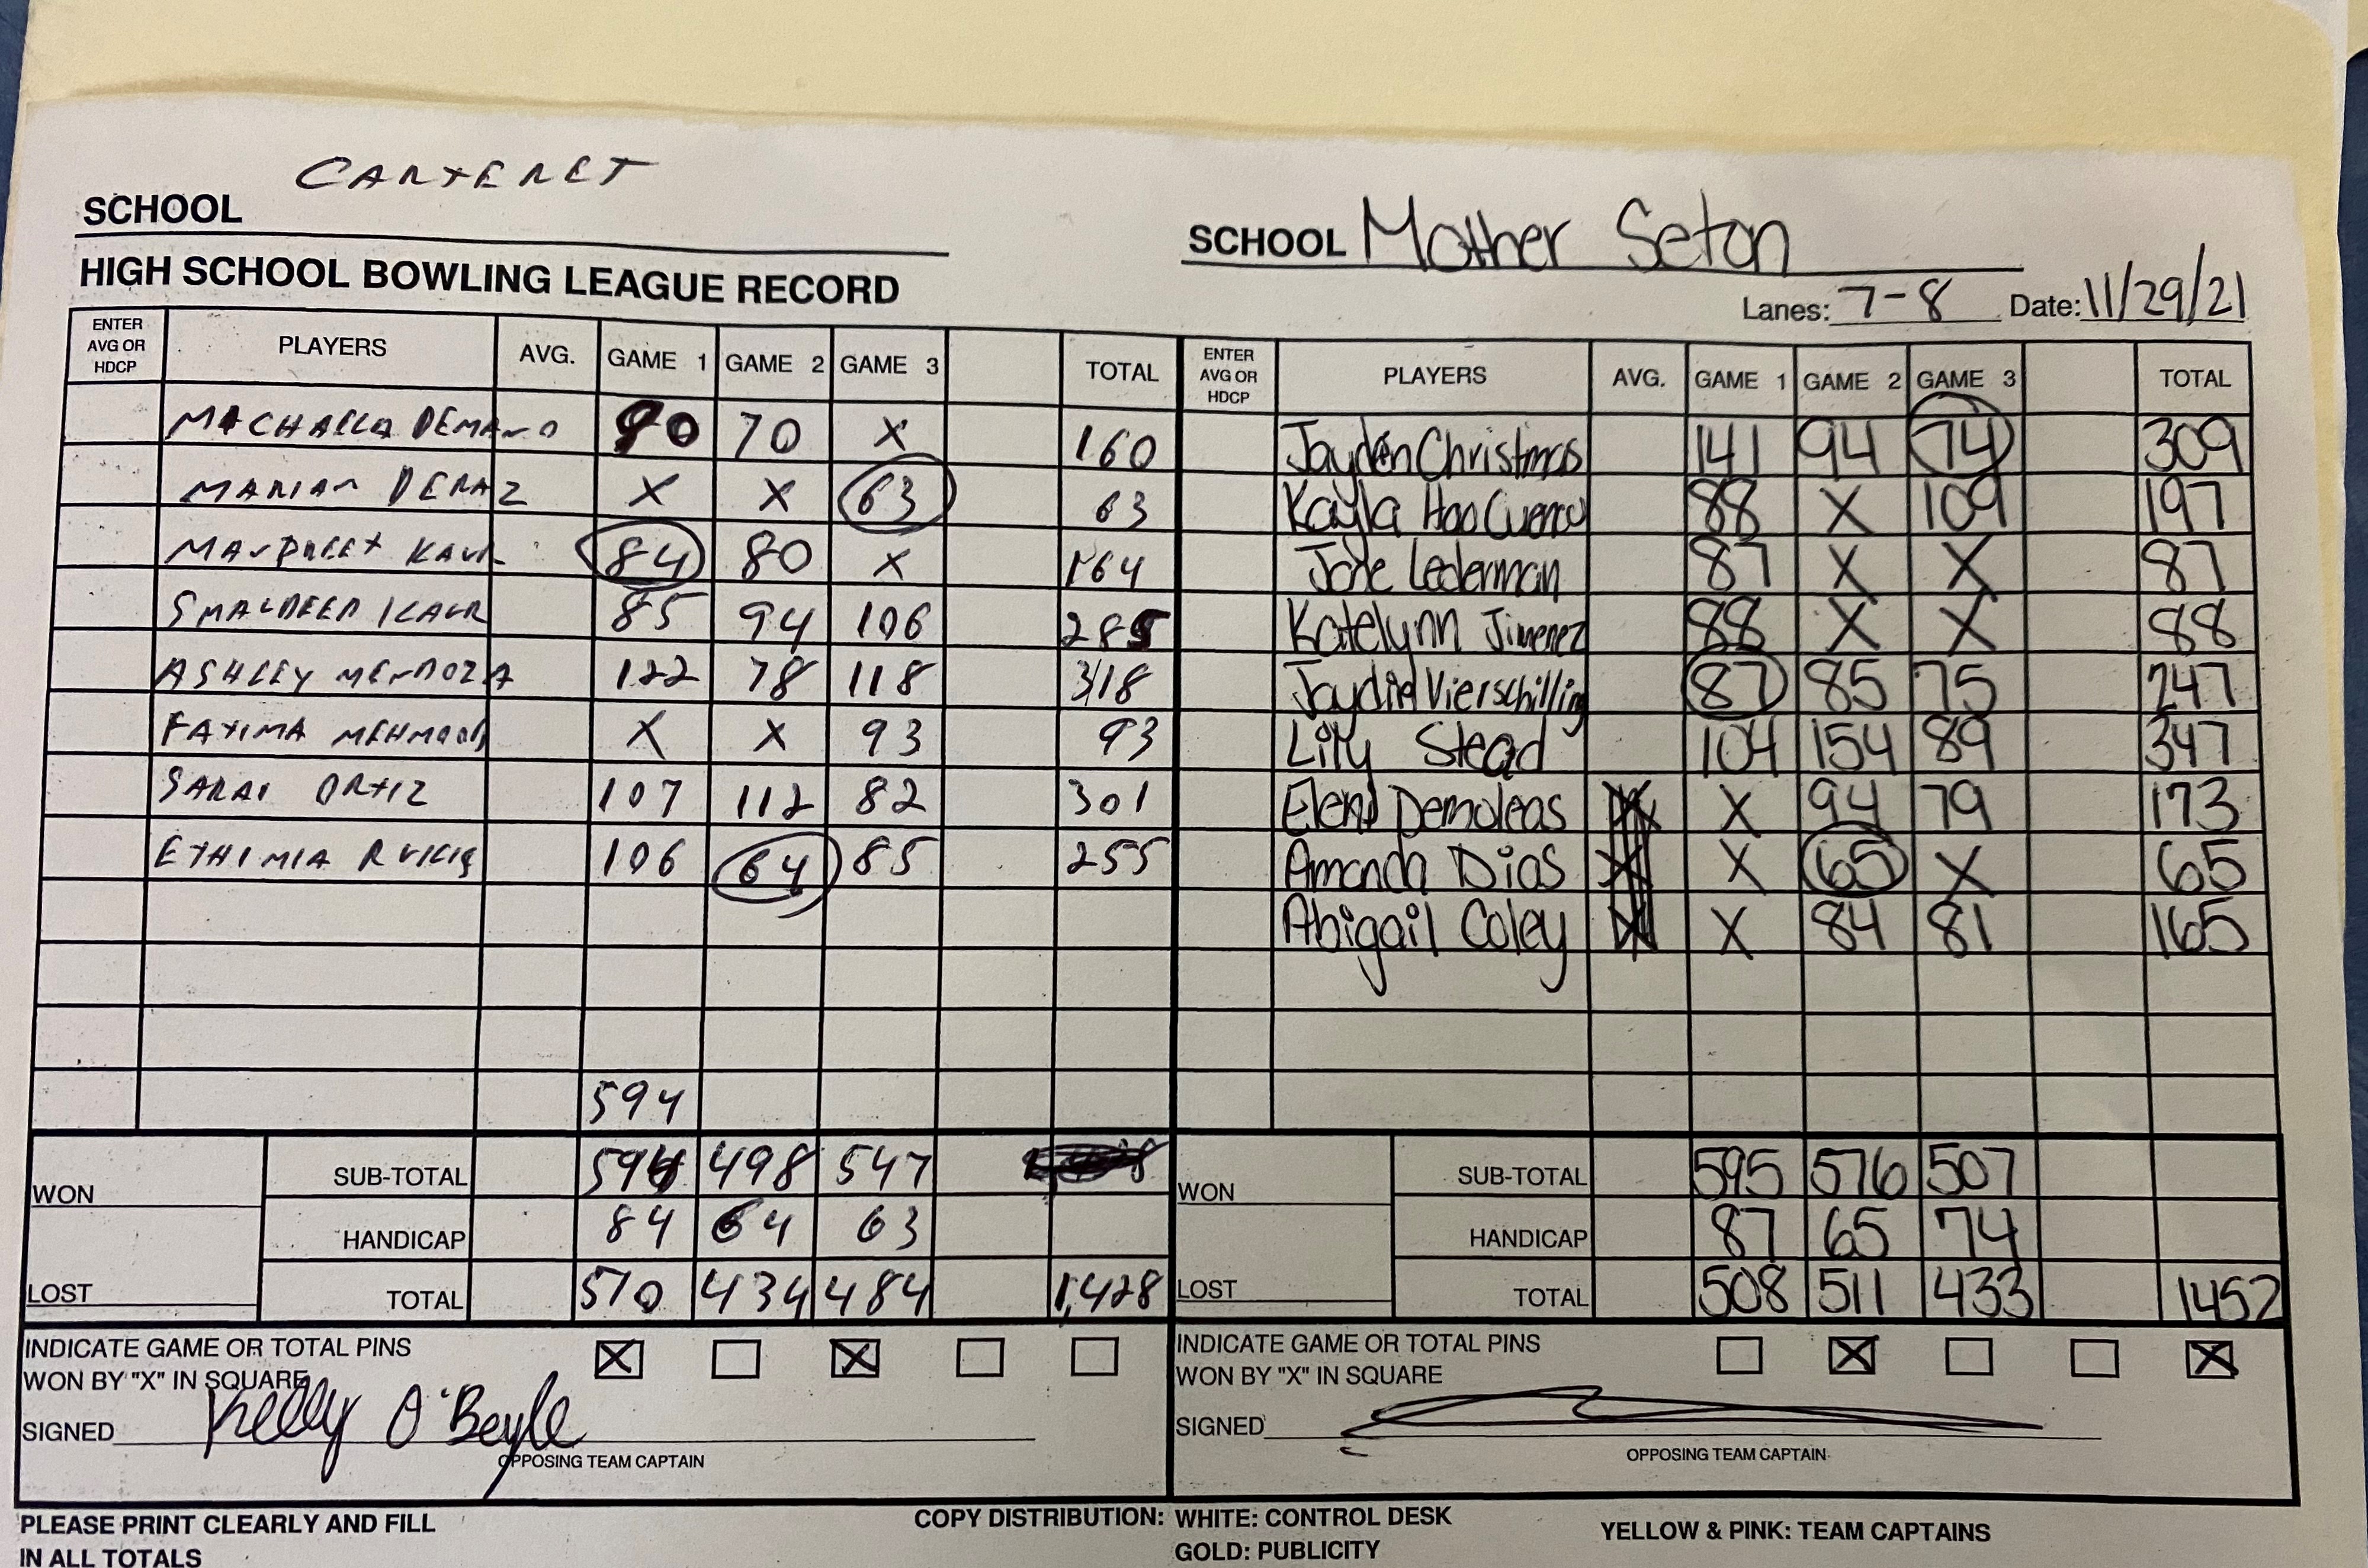 CARTERET
SCHOOL
SCHOOL Mother Seton
HIGH SCHOOL BOWLING LEAGUE RECORD
Lanes: 7-8 Date: 11/29/21
ENTER AVG OR HDCP PLAYERS AVG. GAME 1 GAME 2 GAME 3 TOTAL ENTER AVG OR HDCP PLAYERS AVG. GAME 1 GAME 2 GAME 3 TOTAL
90 70 X 160 Jaydén Christmas 141 94 74 309
X X 63 63 Kayla 88 X 109 197
KAUR 84 80 X 164 Lederman 87 X X 87
KAUR 85 94 106 285 Katelynn Jimenez 88 X X 88
ASHLEY MENDOZA 122 78 118 318 Vierschilling 87 85 75 247
FATIMA MEHMOOD X X 93 93 Lily Stead 104 154 89 347
SARAI ORTIZ 107 112 82 301 Demoleas X 94 79 173
106 64 85 255 Amanda Dias X 65 X 65
Abigail Coley X 84 81 165
594
WON SUB-TOTAL 594 498 547 WON SUB-TOTAL 595 576 507
HANDICAP 84 64 63 HANDICAP 87 65 74
LOST TOTAL 510 434 484 1,428 LOST TOTAL 508 511 433 1452
INDICATE GAME OR TOTAL PINS X X INDICATE GAME OR TOTAL PINS X X
WON BY "X" IN SQUARE WON BY "X" IN SQUARE
SIGNED Kelly O'Beyle SIGNED
OPPOSING TEAM CAPTAIN OPPOSING TEAM CAPTAIN
PLEASE PRINT CLEARLY AND FILL COPY DISTRIBUTION: WHITE: CONTROL DESK YELLOW & PINK: TEAM CAPTAINS
IN ALL TOTALS GOLD: PUBLICITY